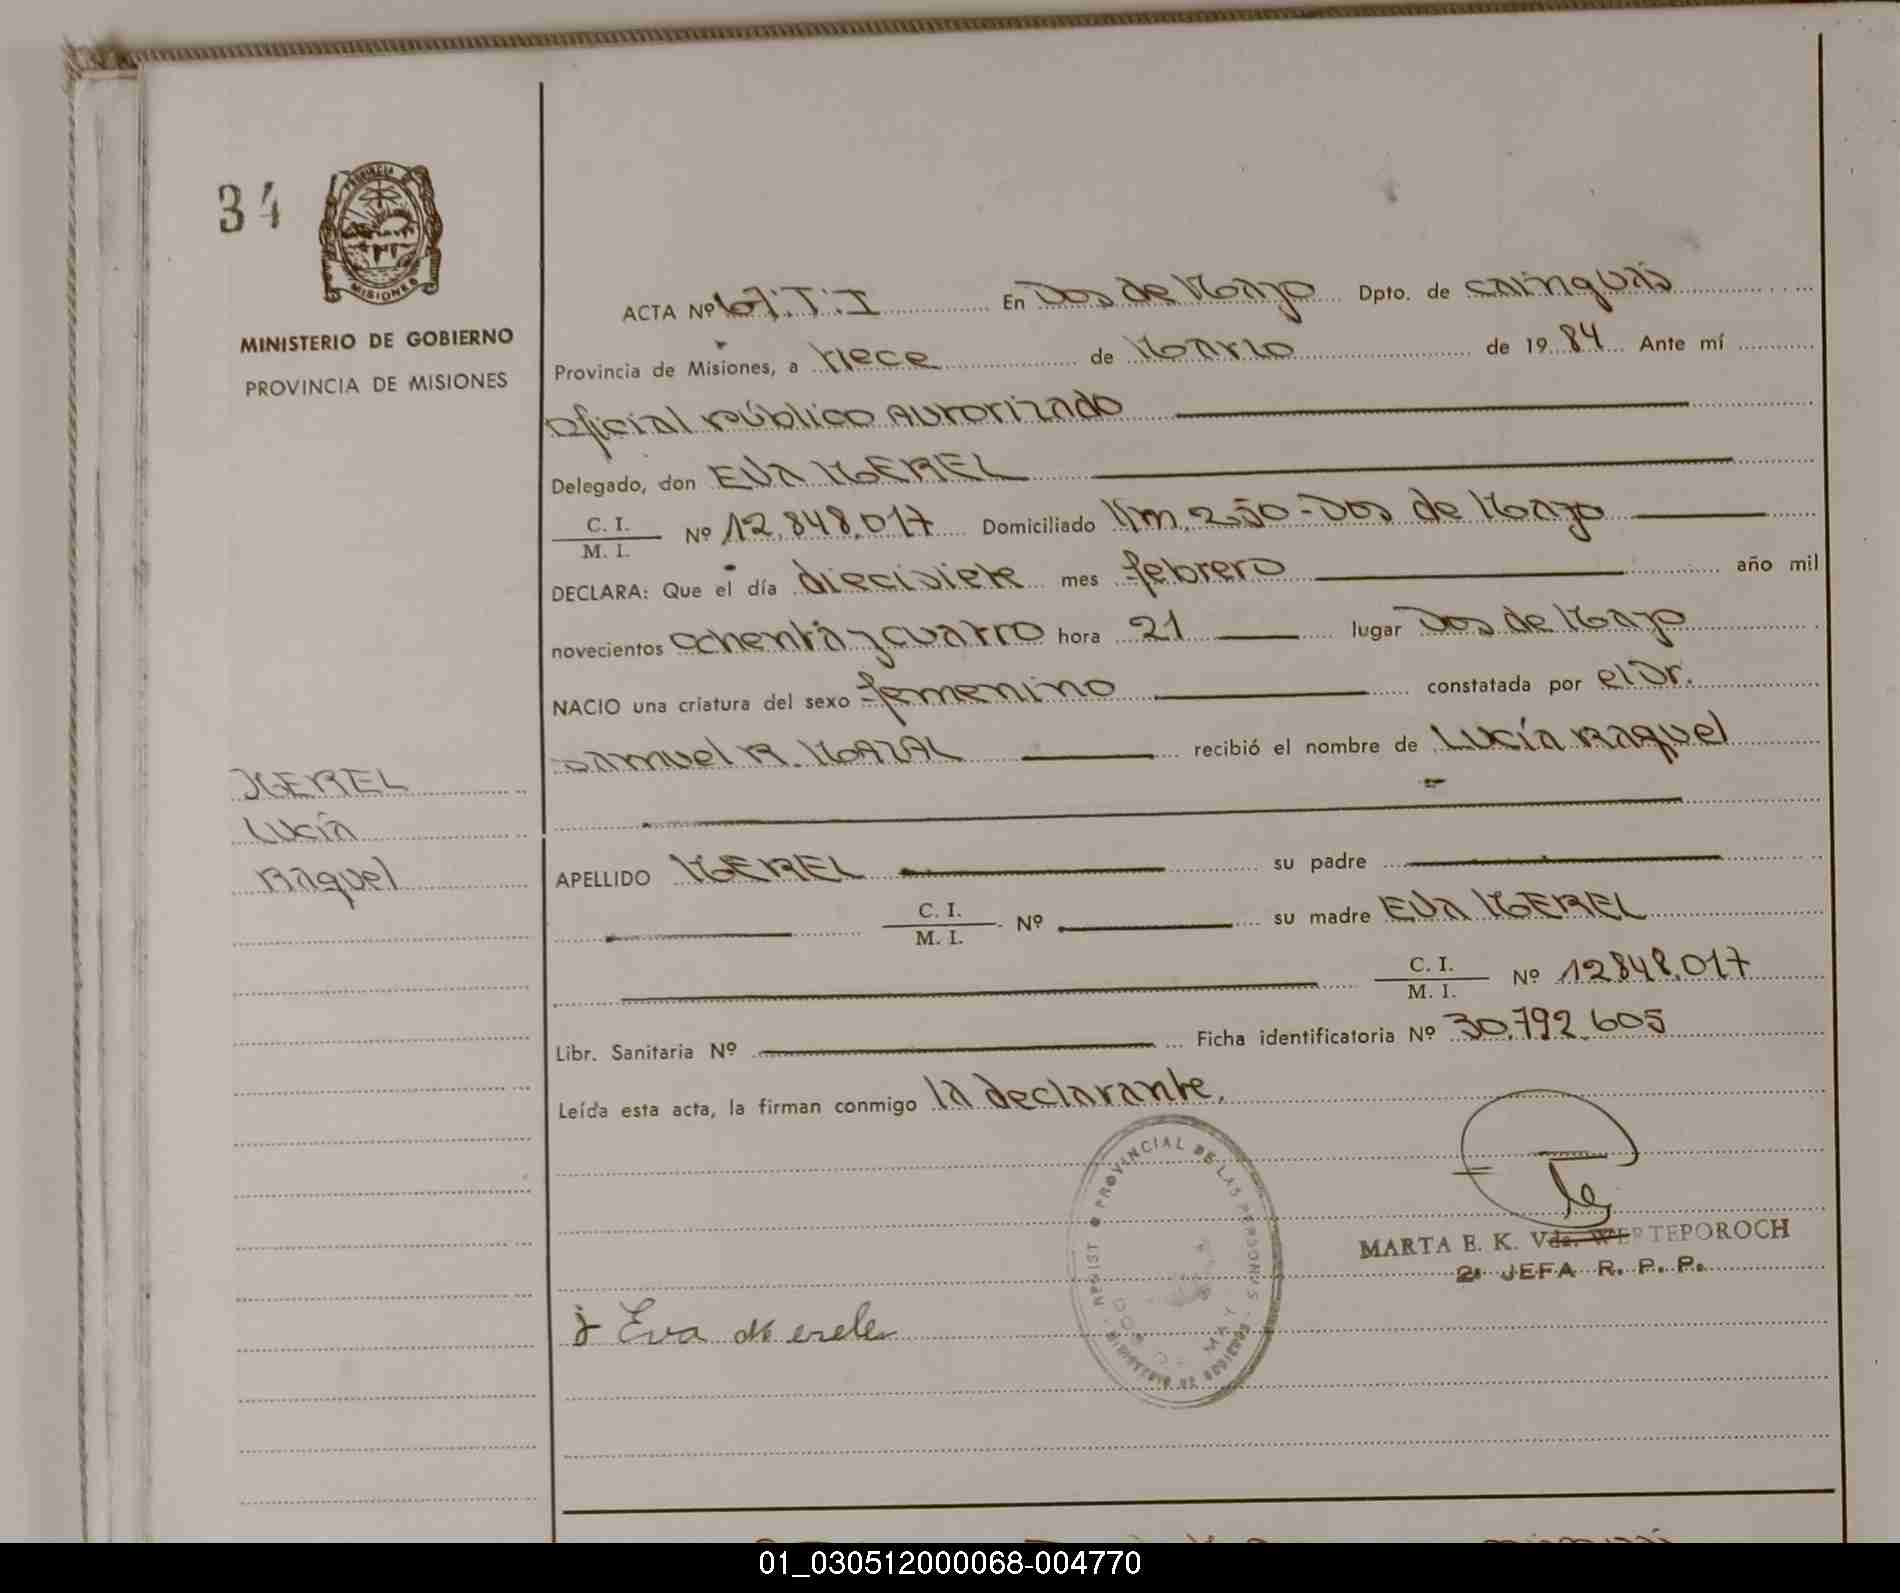 34
PROVINCIA
MISIONES
MINISTERIO DE GOBIERNO
PROVINCIA DE MISIONES
ACTA Nº 67.T.I En Dos de Mayo Dpto. de Cainguás
Provincia de Misiones, a trece de Marzo de 1984 Ante mí
Oficial Público Autorizado
Delegado, don Eva MEREL
C. I. / M. I. Nº 12.848.017 Domiciliado Km. 250-Dos de Mayo
DECLARA: Que el día diecisiete mes febrero año mil
novecientos ochenta y cuatro hora 21 lugar Dos de Mayo
NACIO una criatura del sexo femenino constatada por el Dr.
Samuel R. recibió el nombre de Lucía Raquel
MEREL
Lucía
Raquel
APELLIDO MEREL su padre
C. I. / M. I. Nº su madre Eva MEREL
C. I. / M. I. Nº 12848.017
Libr. Sanitaria Nº Ficha identificatoria Nº 30.792.605
Leída esta acta, la firman conmigo la declarante,
PROVINCIAL DE LAS PERSONAS
MARTA E. K. Vda. TEPOROCH
2ª JEFA R. P. P.
Eva
01_030512000068-004770